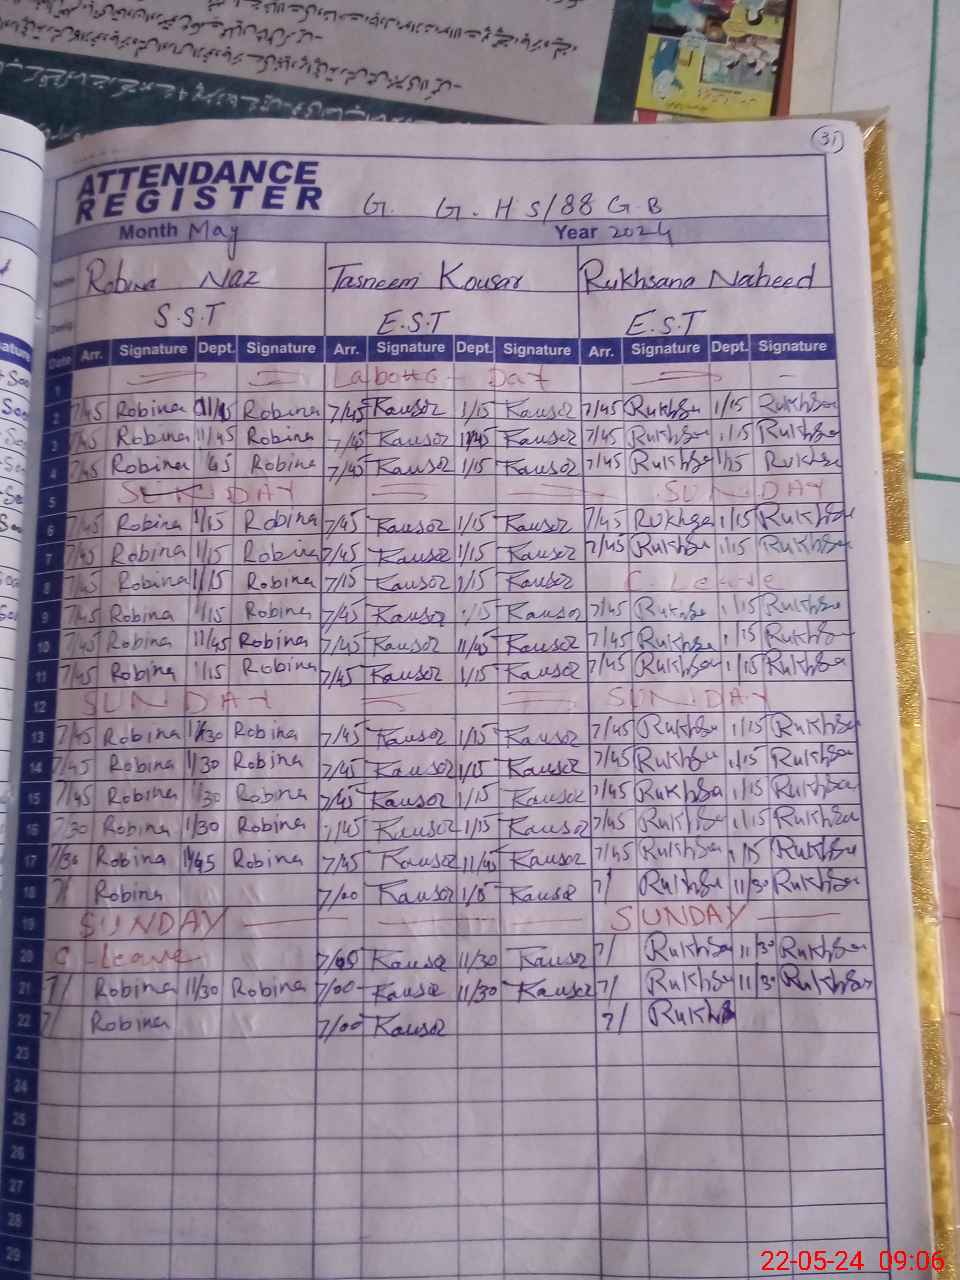 31
ATTENDANCE
REGISTER G. G.H S/88 G.B
Month May Year 2024
Name Robina Naz Tasneem Kousar Rukhsana Naheed
S.S.T E.S.T E.S.T
Date Arr. Signature Dept. Signature Arr. Signature Dept. Signature Arr. Signature Dept. Signature
1 Day
2 7/45 Robina Robina 7/45 Kausar 1/15 Kausar 7/45 Rukhsa 1/15 Rukhsa
3 7/45 Robina 11/45 Robina 7/45 Kausar 11/45 Kausar 7/45 Rukhsa 1/15 Rukhsa
4 7/45 Robina Robina 7/45 Kausar 1/15 Kausar 7/45 Rukhsa 1/15 Rukhsa
5 SUNDAY SUNDAY
6 7/45 Robina 1/15 Robina 7/45 Kausar 1/15 Kausar 7/45 Rukhsa 1/15 Rukhsa
7 7/45 Robina 1/15 Robina 7/45 Kausar 1/15 Kausar 7/45 Rukhsa 1/15 Rukhsa
8 7/45 Robina 1/15 Robina 7/15 Kausar 1/15 Kausar C. Leave
9 7/45 Robina 1/15 Robina 7/45 Kausar 1/15 Kausar 7/45 Rukhsa 1/15 Rukhsa
10 7/45 Robina 11/45 Robina 7/45 Kausar 11/45 Kausar 7/45 Rukhsa 1/15 Rukhsa
11 7/45 Robina 1/15 Robina 7/45 Kausar 1/15 Kausar 7/45 Rukhsa 1/15 Rukhsa
12 SUNDAY SUNDAY
13 7/45 Robina 1/30 Robina 7/45 Kausar 1/15 Kausar 7/45 Rukhsa 1/15 Rukhsa
14 7/45 Robina 1/30 Robina 7/45 Kausar 1/15 Kausar 7/45 Rukhsa 1/15 Rukhsa
15 7/45 Robina 1/30 Robina 7/45 Kausar 1/15 Kausar 7/45 Rukhsa 1/15 Rukhsa
16 7/30 Robina 1/30 Robina 7/45 Kausar 1/15 Kausar 7/45 Rukhsa 1/15 Rukhsa
17 7/30 Robina 11/45 Robina 7/45 Kausar 11/45 Kausar 7/45 Rukhsa 1/15 Rukhsa
18 7/ Robina 7/00 Kausar Kausar 7/ Rukhsa 11/30 Rukhsa
19 SUNDAY SUNDAY
20 C Leave 7/00 Kausar 11/30 Kausar 7/ Rukhsa 11/30 Rukhsa
21 7/ Robina 11/30 Robina 7/00 Kausar 11/30 Kausar 7/ Rukhsa 11/30 Rukhsa
22 7/ Robina 7/00 Kausar 7/ Rukhs
23
24
25
26
27
28
29
22-05-24 09:06